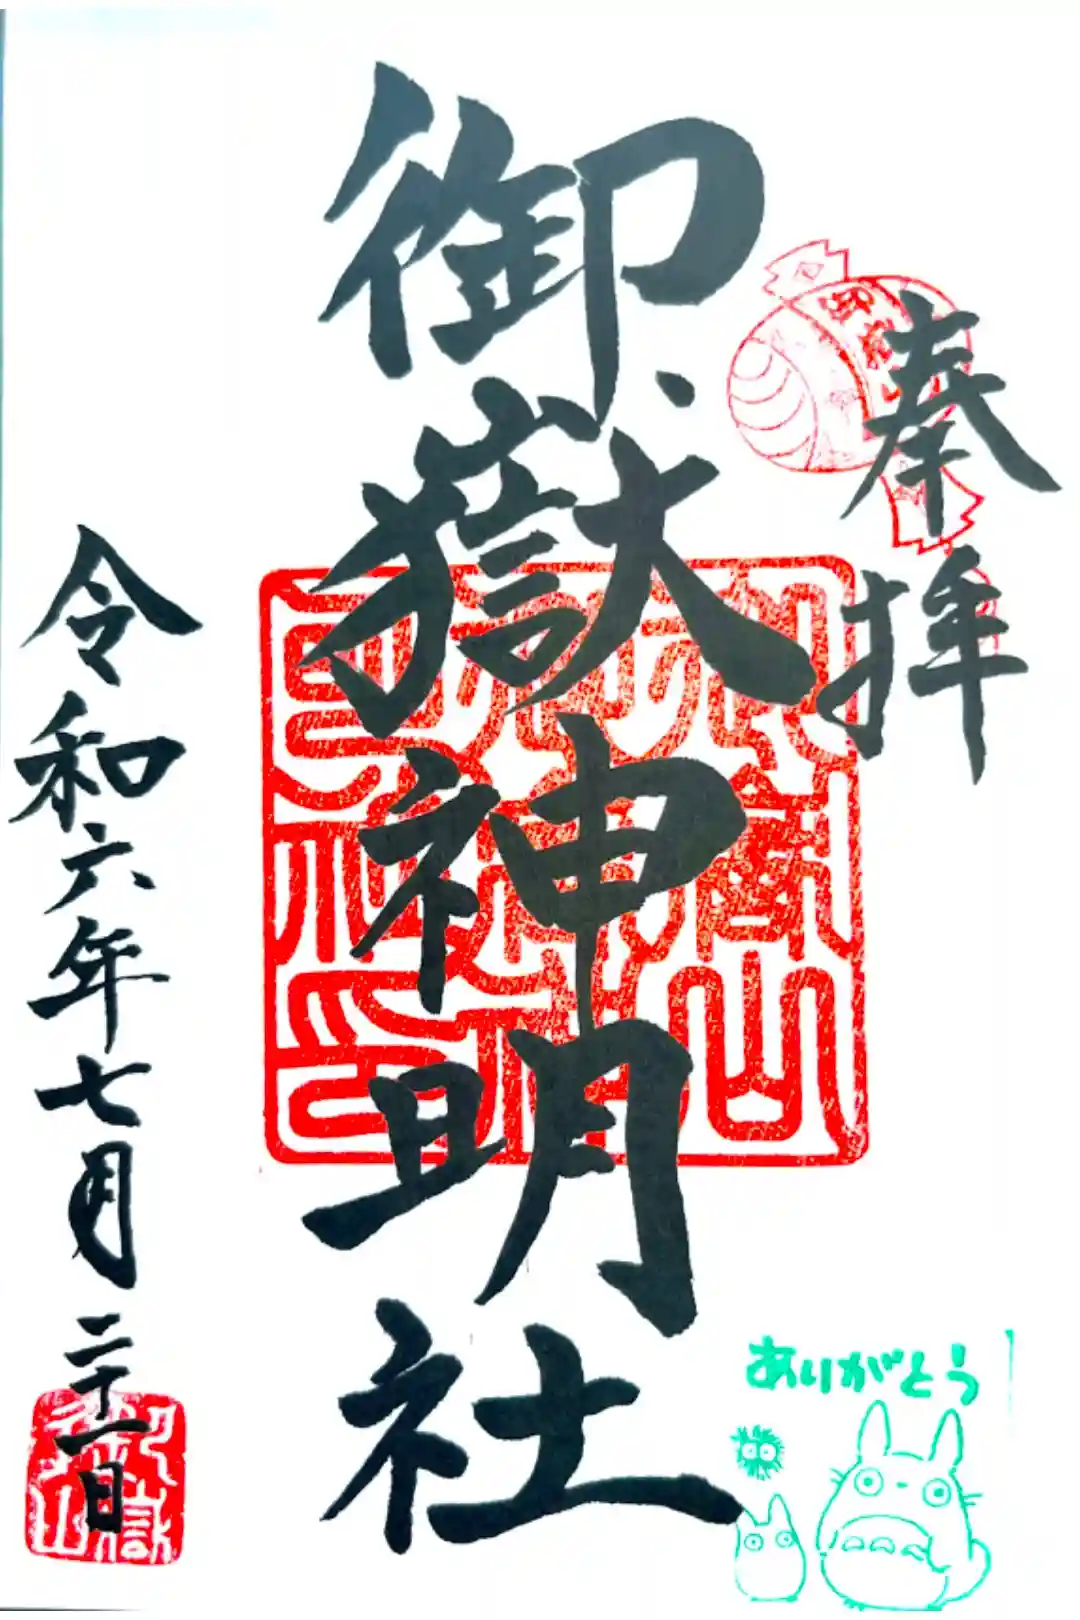 奉拝
御嶽神明社
令和六年七月二十一日
ありがとう